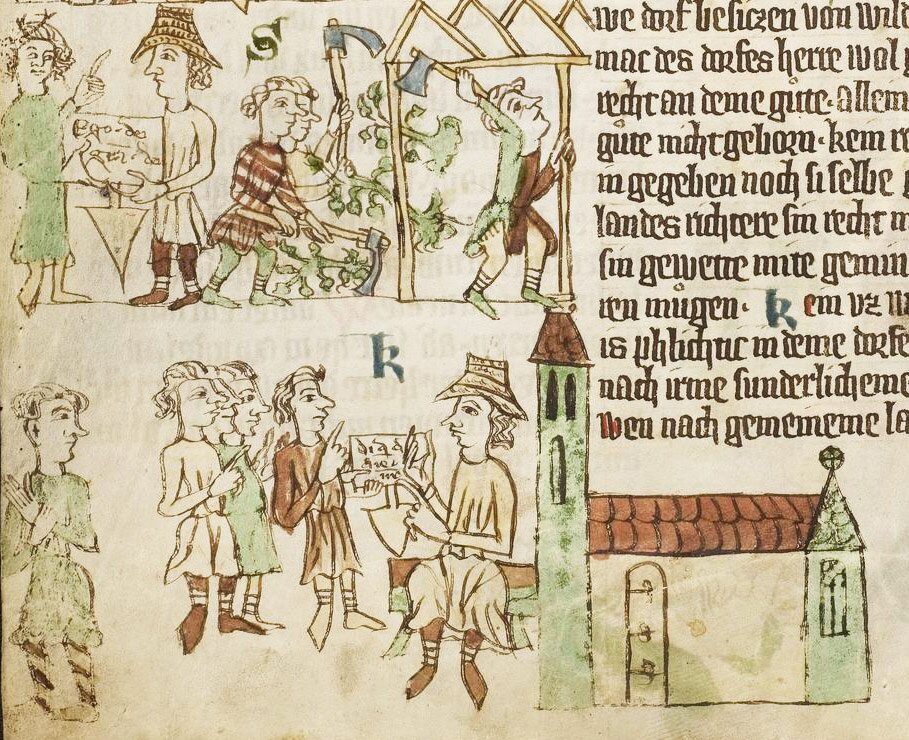 S
we dorf besiczen von wild
mac des dorfes herre wol
recht an deme gůte. allem
gůte nicht geborn. kein re
in gegeben noch si selbe
landes richtere sin recht
sin gewette mite gemin
ren můgen. k ein vz w
is phlichtic in deme dorfe
nach irme sunderlicheme
wen nach gemeineme la
k